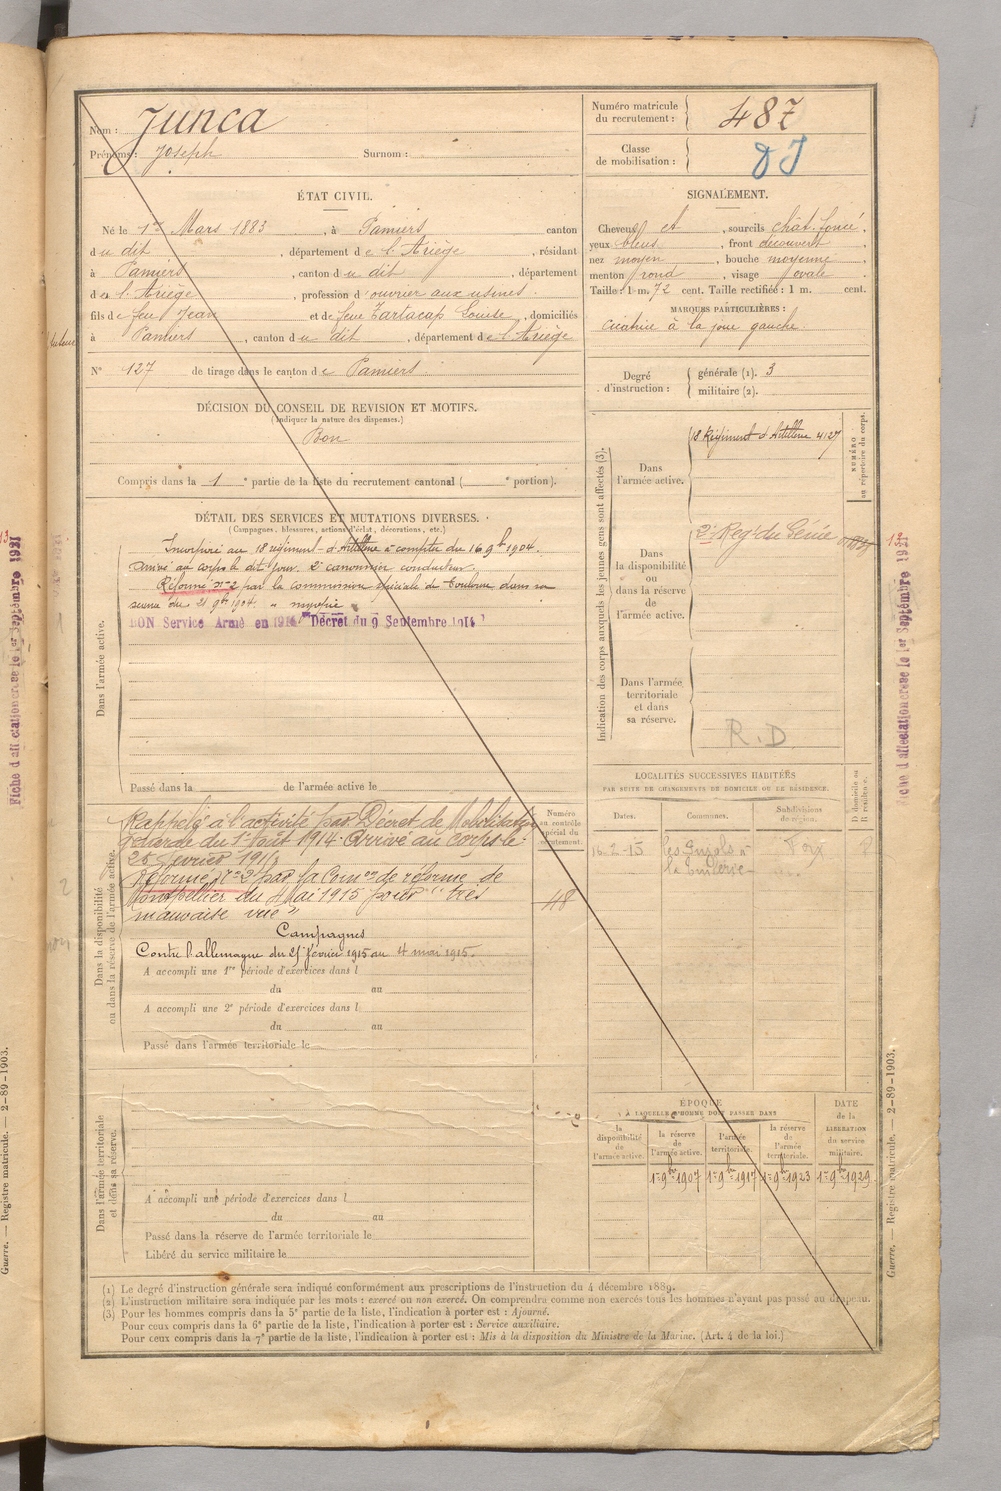 Nom : Junca
Prénoms : Joseph Surnom :
Numéro matricule du recrutement : 487
Classe de mobilisation :
ÉTAT CIVIL.
Né le 1er Mars 1883, à Pamiers canton
du dit, département de l'Ariège, résidant
à Pamiers, canton du dit département
de l'Ariège, profession d'ouvrier aux usines
fils de feu Jean et de feue Tarlacap Louise, domiciliés
à Pamiers, canton du dit, département de l'Ariège
N° 127 de tirage dans le canton de Pamiers
DÉCISION DU CONSEIL DE REVISION ET MOTIFS.
(Indiquer la nature des dispenses.)
Bon
Compris dans la 1e partie de la liste du recrutement cantonal ( e portion).
SIGNALEMENT.
Cheveux et, sourcils chât. foncé,
yeux bleus, front découvert,
nez moyen, bouche moyenne,
menton rond, visage ovale.
Taille : 1 m. 72 cent. Taille rectifiée : 1 m. cent.
MARQUES PARTICULIÈRES :
Cicatrice à la joue gauche.
Degré d'instruction : générale (1). 3
militaire (2).
DÉTAIL DES SERVICES ET MUTATIONS DIVERSES.
(Campagnes, blessures, actions d'éclat, décorations, etc.)
Dans l'armée active.
Incorporé au 18e régiment d'Artillerie à compter du 16 9bre 1904.
Arrivé au corps le dit jour. 2e canonnier conducteur.
Réformé n° 2 par la commission spéciale de Toulouse dans sa
séance du 21 9bre 1904.
BON Service Armé en 1914 Décret du 9 Septembre 1914
Passé dans la de l'armée active le
Indication des corps auxquels les jeunes gens sont affectés (3).
NUMÉRO au répertoire du corps.
Dans l'armée active.
18e Régiment d'Artillerie 4127
Dans la disponibilité ou dans la réserve de l'armée active.
2e Reg' du Génie
Dans l'armée territoriale et dans sa réserve.
R.D
LOCALITÉS SUCCESSIVES HABITÉES
PAR SUITE DE CHANGEMENTS DE DOMICILE OU DE RÉSIDENCE.
D domicile ou R résidence.
Dates. Communes. Subdivisions de région.
16-2-15 Foix R
Dans la disponibilité ou dans la réserve de l'armée active.
Numéro au contrôle spécial du recrutement.
Rappelé à l'activité par Décret de Mobilisation
générale du 1er Août 1914. Arrivé au Corps le
25 février 1915
Réformé n° 2 par la Comon de réforme de
Montpellier du 4 Mai 1915 pour "très
mauvaise vue"
48
Campagnes
Contre l'allemagne du 25 février 1915 au 4 mai 1915.
A accompli une 1re période d'exercices dans l
du au
A accompli une 2e période d'exercices dans l
du au
Passé dans l'armée territoriale le
Dans l'armée territoriale et dans sa réserve.
A accompli une période d'exercices dans l
du au
Passé dans la réserve de l'armée territoriale le
Libéré du service militaire le
ÉPOQUE
À LAQUELLE L'HOMME DOIT PASSER DANS
DATE de la LIBÉRATION du service militaire.
la disponibilité de l'armée active.
la réserve de l'armée active.
l'armée territoriale.
la réserve de l'armée territoriale.
1er 9bre 1907 1er 9bre 1917 1er 9bre 1923 1er 9bre 1929
(1) Le degré d'instruction générale sera indiqué conformément aux prescriptions de l'instruction du 4 décembre 1889.
(2) L'instruction militaire sera indiquée par les mots : exercé ou non exercé. On comprendra comme non exercés tous les hommes n'ayant pas passé au drapeau.
(3) Pour les hommes compris dans la 5e partie de la liste, l'indication à porter est : Ajourné.
Pour ceux compris dans la 6e partie de la liste, l'indication à porter est : Service auxiliaire.
Pour ceux compris dans la 7e partie de la liste, l'indication à porter est : Mis à la disposition du Ministre de la Marine. (Art. 4 de la loi.)
Fiche d'affectation créée le 1er Septembre 1921
Guerre. — Registre matricule. — 2-89-1903.
Fiche d'affectation créée le 1er Septembre 1921
Guerre. — Registre matricule. — 2-89-1903.